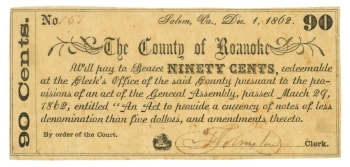 No. 167 Salem, Va., Dec. 1, 1862. 90
The County of Roanoke
90 Cents.
Will pay to Bearer NINETY CENTS, redeemable
at the Clerk's Office of the said County pursuant to the provi-
sions of an act of the General Assembly, passed March 29,
1862, entitled "An Act to provide a currency of notes of less
denomination than five dollars, and amendments thereto.
By order of the Court.
Clerk.